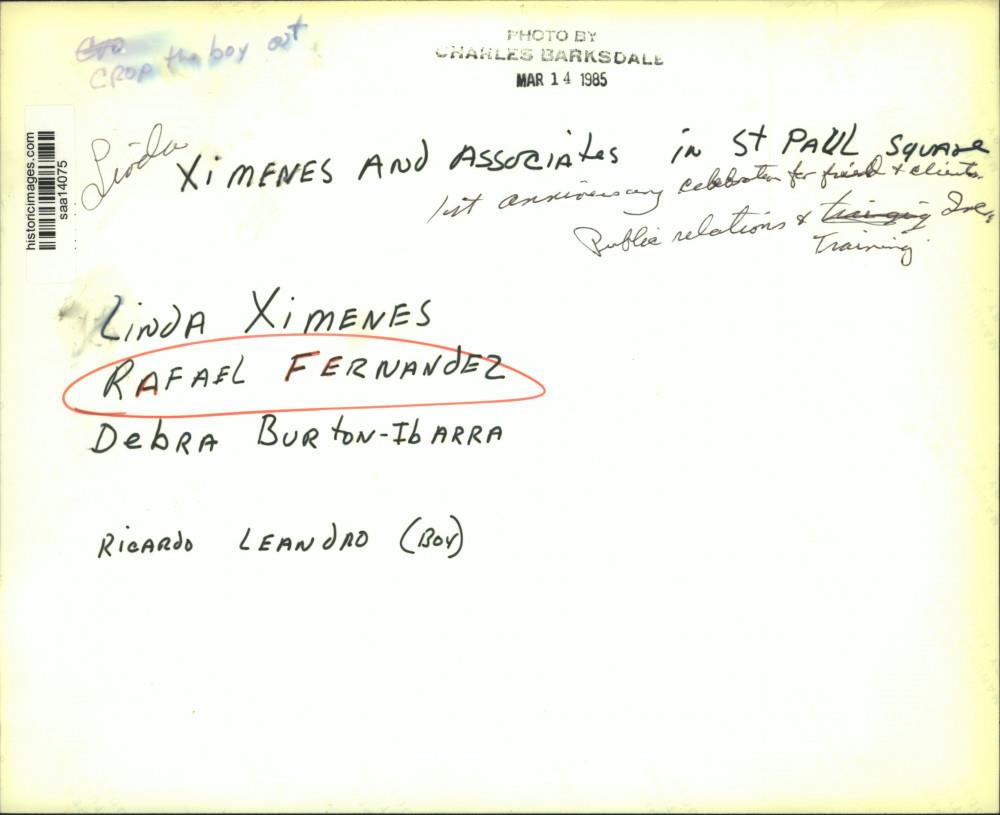 CROP the boy out
PHOTO BY
CHARLES BARKSDALE
MAR 14 1985
historicimages.com
saa14075
Linda
XiMENES AND ASSOCIAtes in St PAUL SQUARE
1st anniversary celebration for friends + clients.
Public relations & training Inc,
Training
LiNDA XiMENES
RAFAEL FERNANDEZ
DebRA BURtoN-IbARRA
RicARDo LEANDRO (Boy)